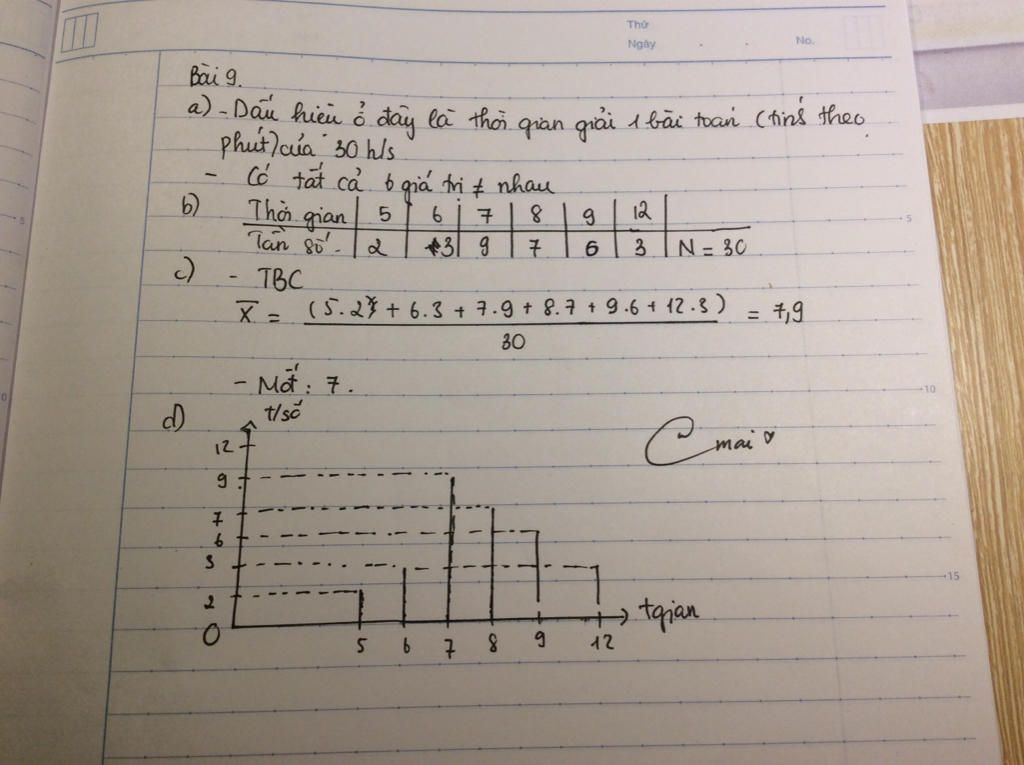 Thứ
Ngày . . No.
Bài 9.
a) - Dấu hiệu ở đây là thời gian giải 1 bài toán (tính theo
phút) của 30 h/s
- Có tất cả 6 giá trị ≠ nhau
b) Thời gian | 5 | 6 | 7 | 8 | 9 | 12 |
Tần số - | 2 | 3 | 9 | 7 | 6 | 3 | N = 30
c) - TBC
X̅ = (5.2 + 6.3 + 7.9 + 8.7 + 9.6 + 12.3) / 30 = 7,9
- Mốt : 7.
d) t/số
mai ♥
12
9
7
6
3
2
O
5 6 7 8 9 12 tgian
5
10
15